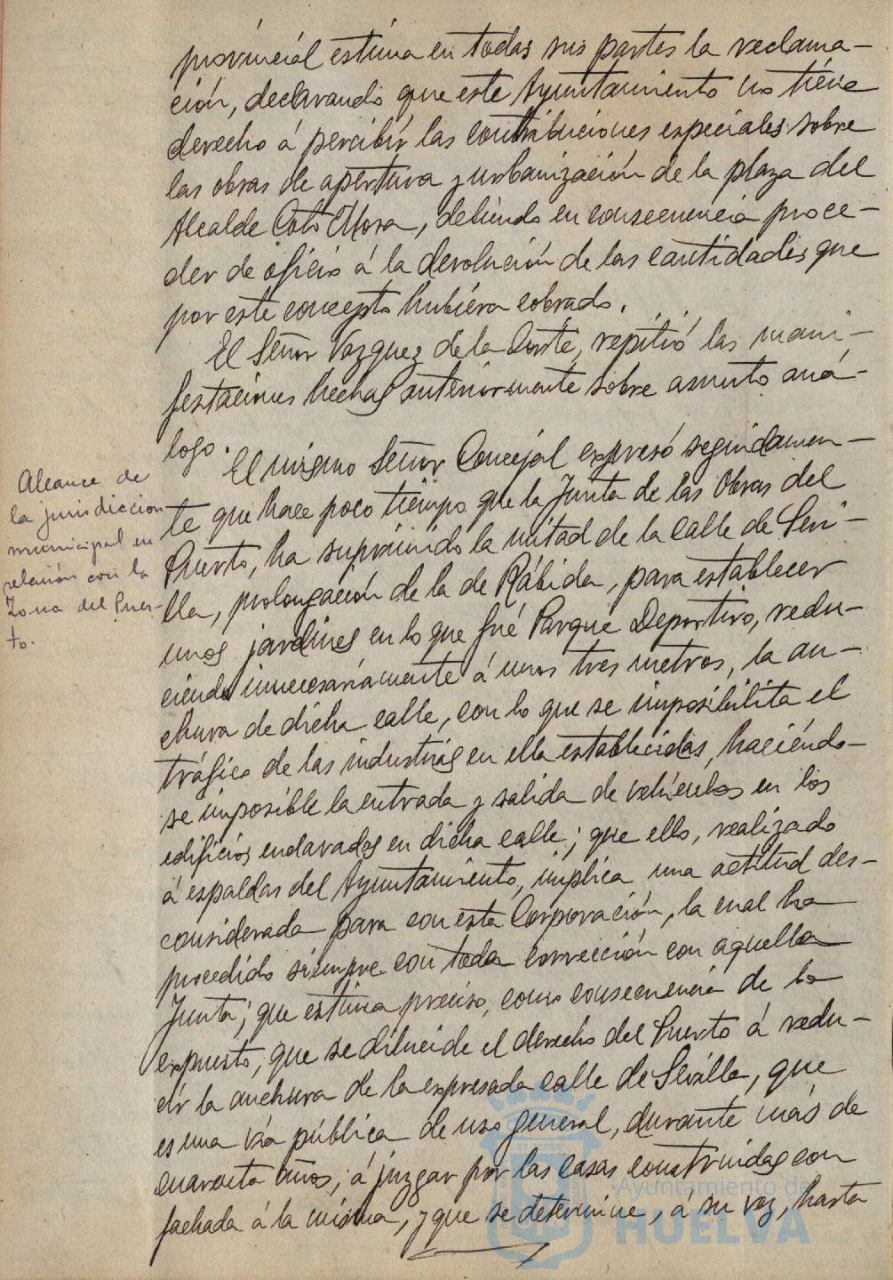 provincial estima en todas sus partes la reclama-
ción, declarando que este Ayuntamiento no tiene
derecho á percibir las contribuciones especiales sobre
las obras de apertura y urbanización de la plaza del
Alcalde Coto Mora, debiendo en consecuencia proce-
der de oficio á la devolución de las cantidades que
por este concepto hubiera cobrado.
El Señor Vazquez de la Corte, repitió las mani-
festaciones hechas anteriormente sobre asunto aná-
logo.
El mismo Señor Concejal expresó seguidamen-
te que hace poco tiempo que la Junta de las Obras del
Puerto, ha suprimido la mitad de la calle de Sevi-
lla, prolongación de la de Rábida, para establecer
unos jardines en lo que fué Parque Deportivo, redu-
ciendo innecesariamente á unos tres metros, la an-
chura de dicha calle, con lo que se imposibilita el
tráfico de las industrias en ella establecidas, haciéndo-
se imposible la entrada y salida de vehículos en los
edificios enclavados en dicha calle; que ello, realizado
á espaldas del Ayuntamiento, implica una actitud des-
considerada para con esta Corporación, la cual ha
procedido siempre con toda corrección con aquella
Junta; que estima preciso, como consecuencia de lo
expuesto, que se dilucide el derecho del Puerto á redu-
cir la anchura de la expresada calle de Sevilla, que
es una vía pública de uso general, durante más de
cuarenta años, á juzgar por las casas construidas con
fachada á la misma, y que se determine, á su vez, hasta
Alcance de
la jurisdiccion
municipal en
relación con la
Zona del Puer-
to.
Ayuntamiento de
HUELVA